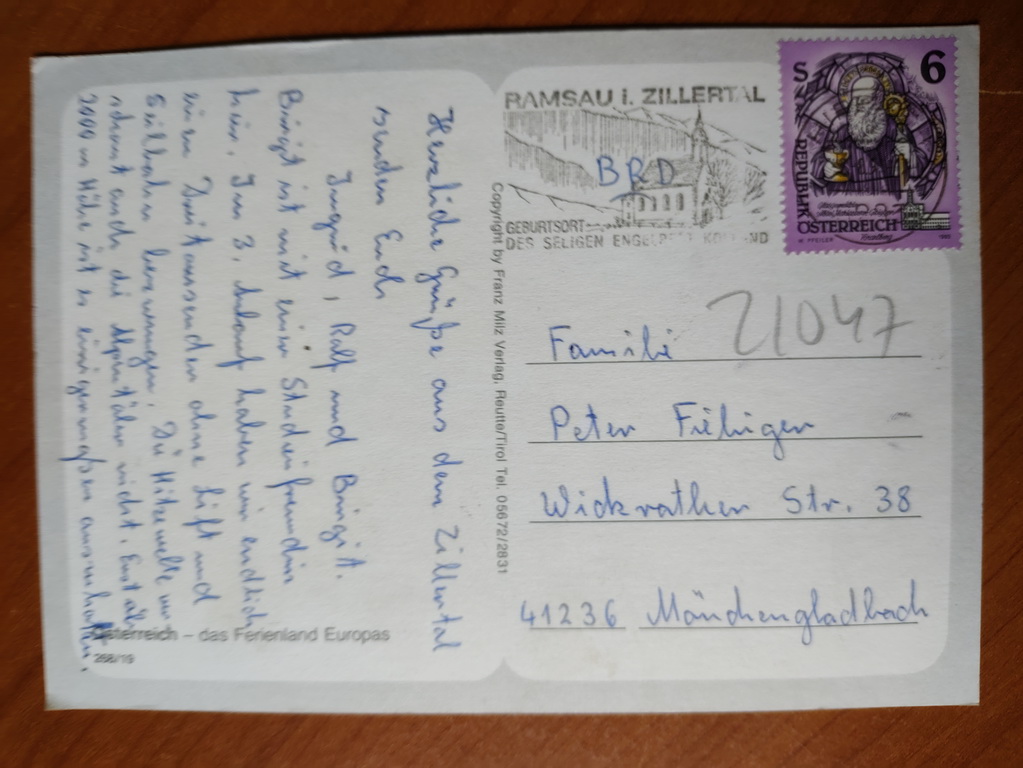 Herzliche Grüße aus dem Zillertal
senden Euch
Ingrid, Ralf und Birgit.
Birgit ist mit einer Studienfreundin
hier. Im 3. Anlauf haben wir endlich
einen Dreitausender ohne Lift und
Seilbahn bezwungen. Die Hitzewelle
schont auch die Alpentäler nicht. Erst ab
2000 m Höhe ist es einigermaßen auszuhalten.
Österreich – das Ferienland Europas
268/19
Copyright by Franz Milz Verlag, Reutte/Tirol Tel. 05672/2831
RAMSAU i. ZILLERTAL
BRD
GEBURTSORT
DES SELIGEN ENGELBERT KOLLAND
S 6
REPUBLIK
ÖSTERREICH
21047
Familie
Peter Fieliger
Wickrather Str. 38
41236 Mönchengladbach